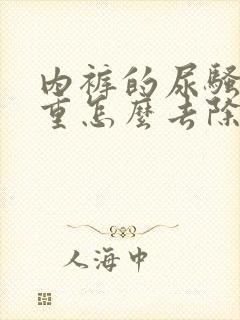 內裤的尿騷
重怎麼去除
人海中